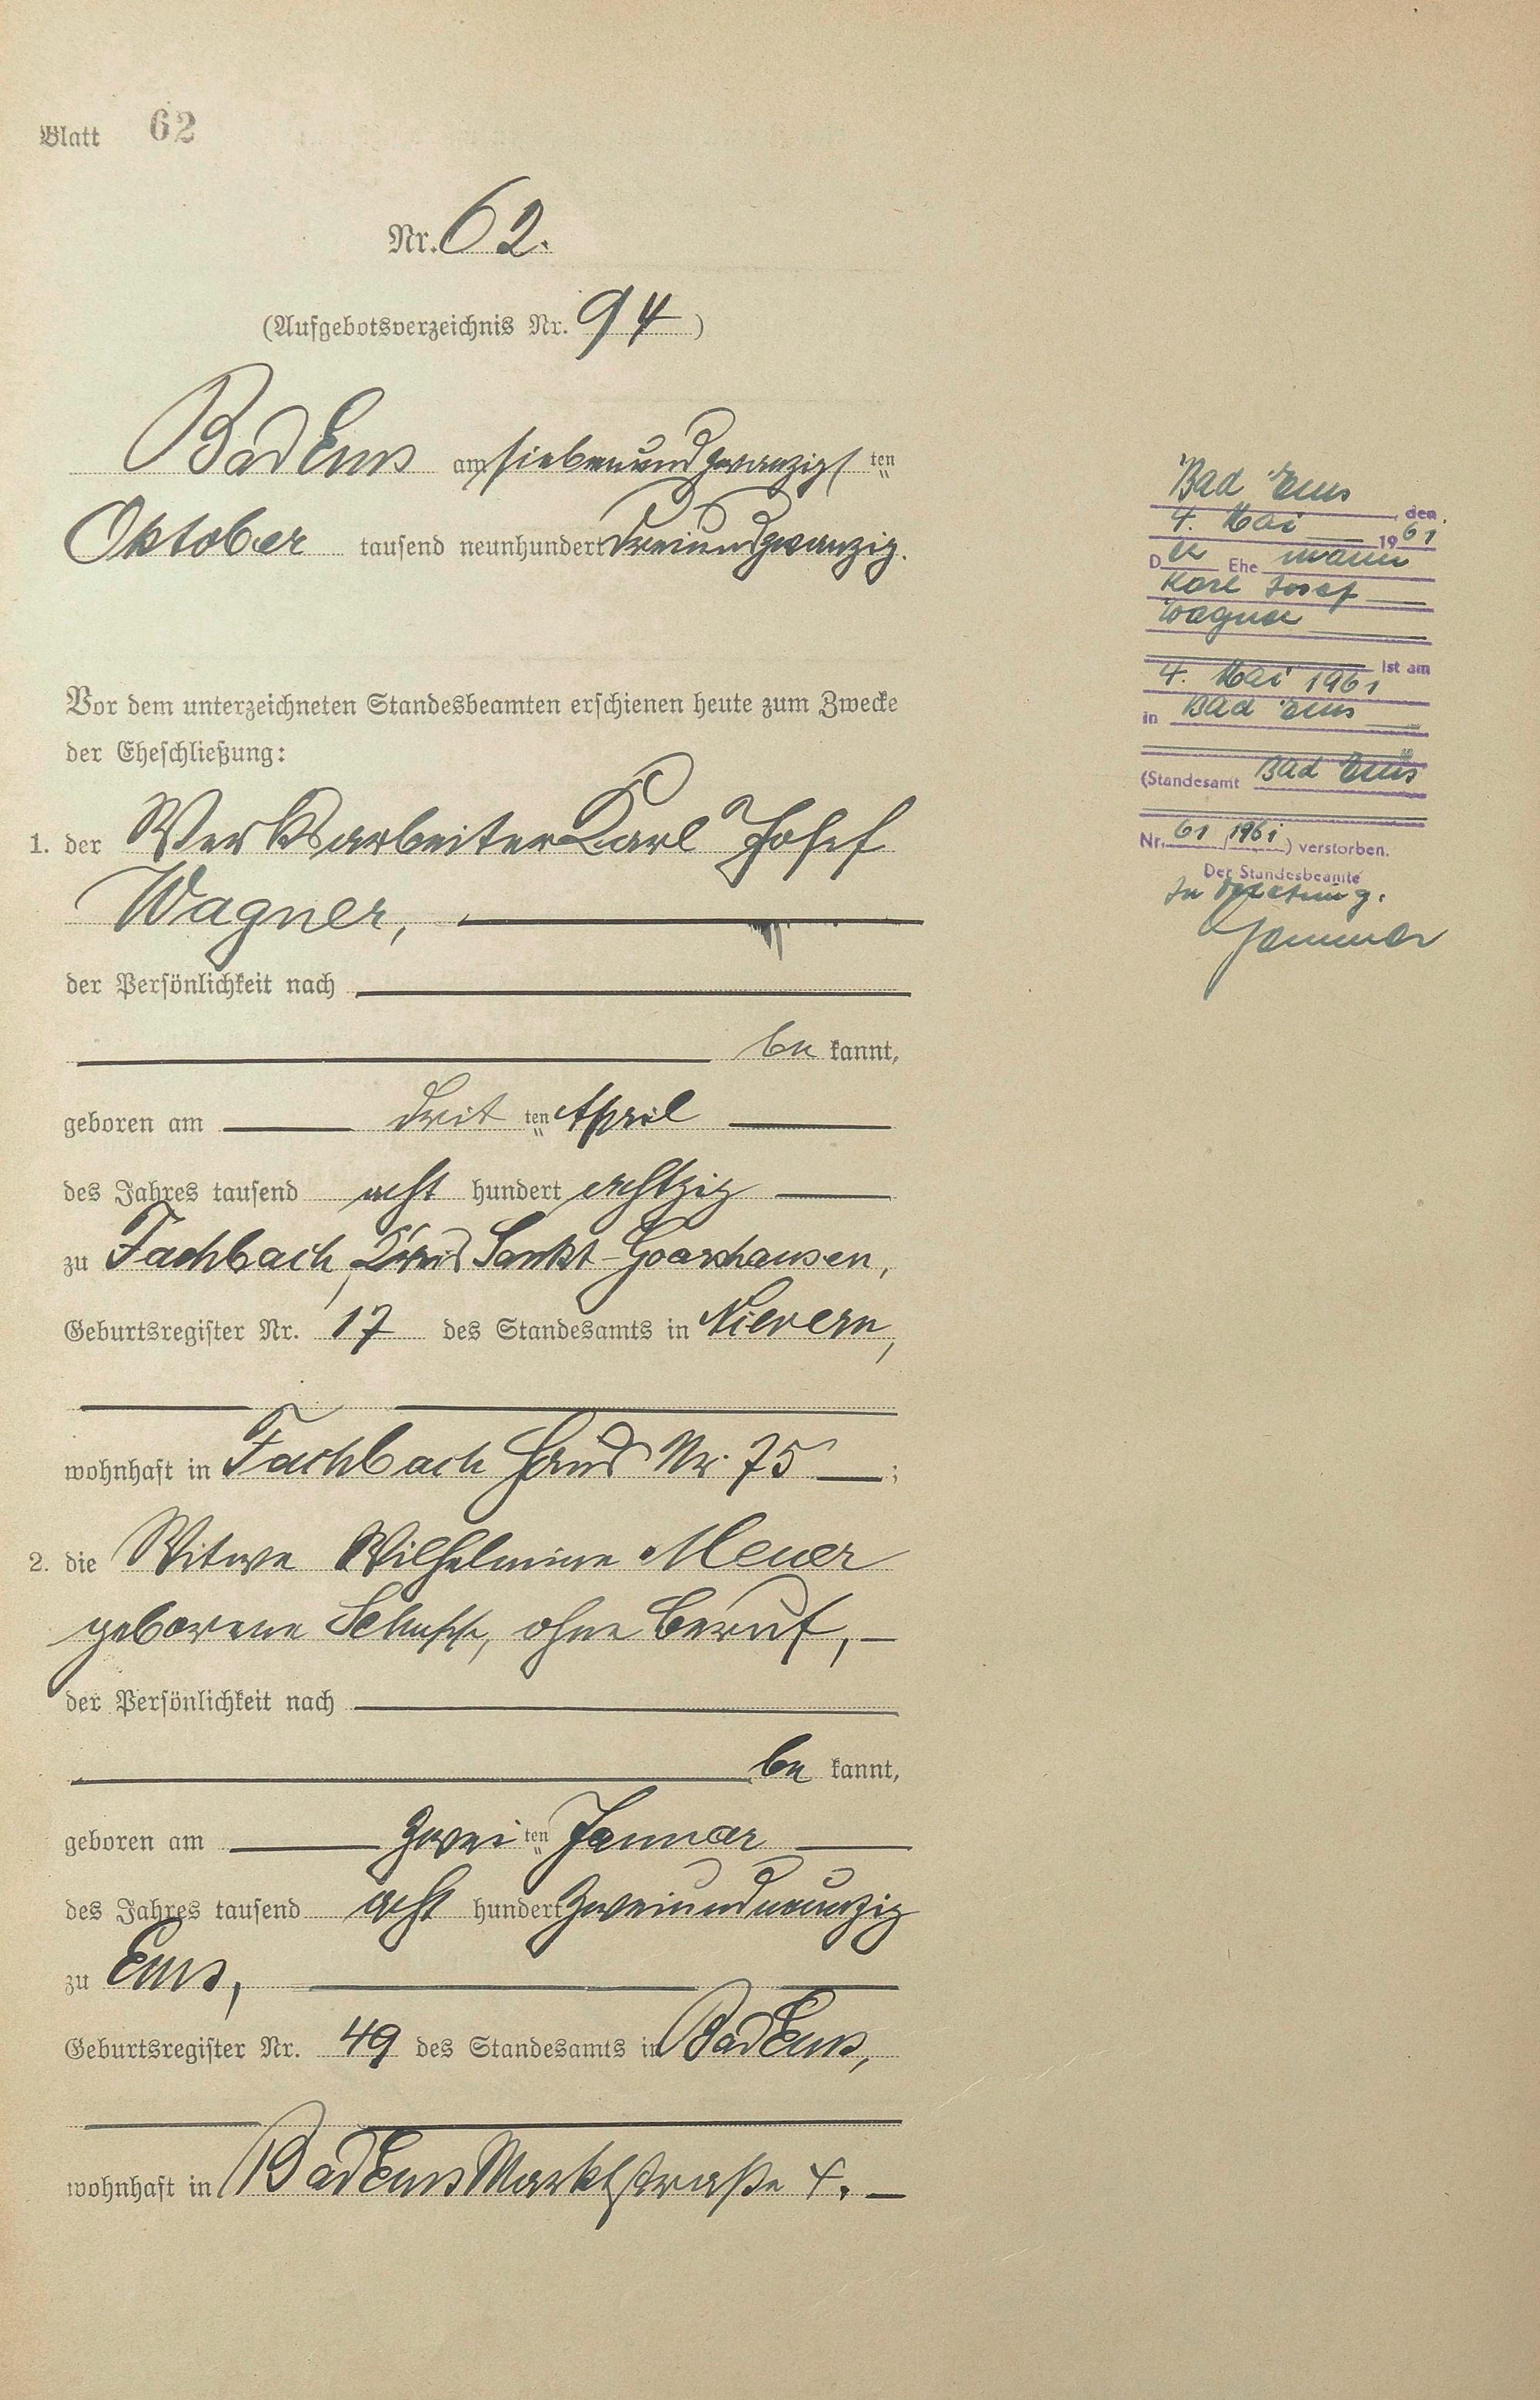 Blatt 62
Nr. 62.
(Aufgebotsverzeichnis Nr. 94)
Bad Ems am siebenundzwanzigsten
Oktober tausend neunhundert dreiundzwanzig.
Vor dem unterzeichneten Standesbeamten erschienen heute zum Zwecke
der Eheschließung:
1. der Werksarbeiter Karl Josef
Wagner,
der Persönlichkeit nach
be kannt,
geboren am dritten April
des Jahres tausend acht hundert achtzig
zu Fachbach, Kreis Sankt-Goarshausen,
Geburtsregister Nr. 17 des Standesamts in Nievern,
wohnhaft in Fachbach Haus Nr. 75;
2. die Witwe Wilhelmine Meuer
geborene Schupp, ohne Beruf,
der Persönlichkeit nach
be kannt,
geboren am zweiten Januar
des Jahres tausend acht hundert zweiundneunzig
zu Ems,
Geburtsregister Nr. 49 des Standesamts in Bad Ems,
wohnhaft in Bad Ems Marktstraße 4.
Bad Ems, den
4. Mai 1961
Der Ehemann
Karl Josef
Wagner
ist am
4. Mai 1961
in Bad Ems
(Standesamt Bad Ems
Nr. 61/1961) verstorben.
Der Standesbeamte
In Vertretung.